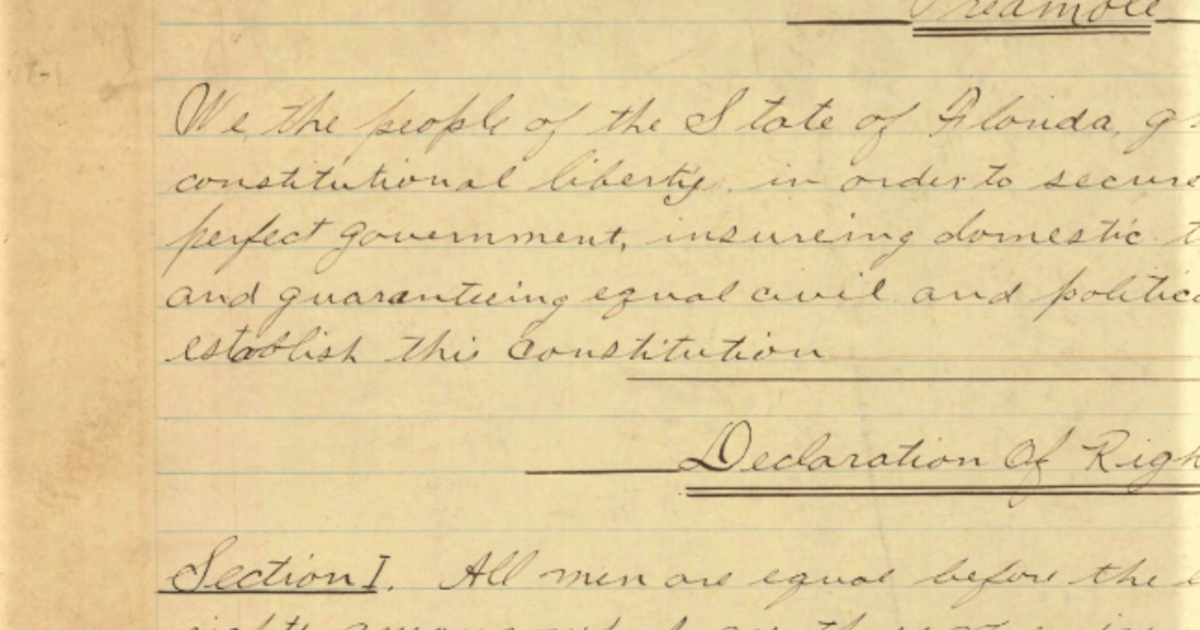 Preamble
We, the people of the State of Florida, g
constitutional liberty, in order to secure
perfect government, insureing domestic t
and guaranteeing equal civil and politica
establish this constitution
Declaration Of Righ
Section I. All men are equal before the l
rights among